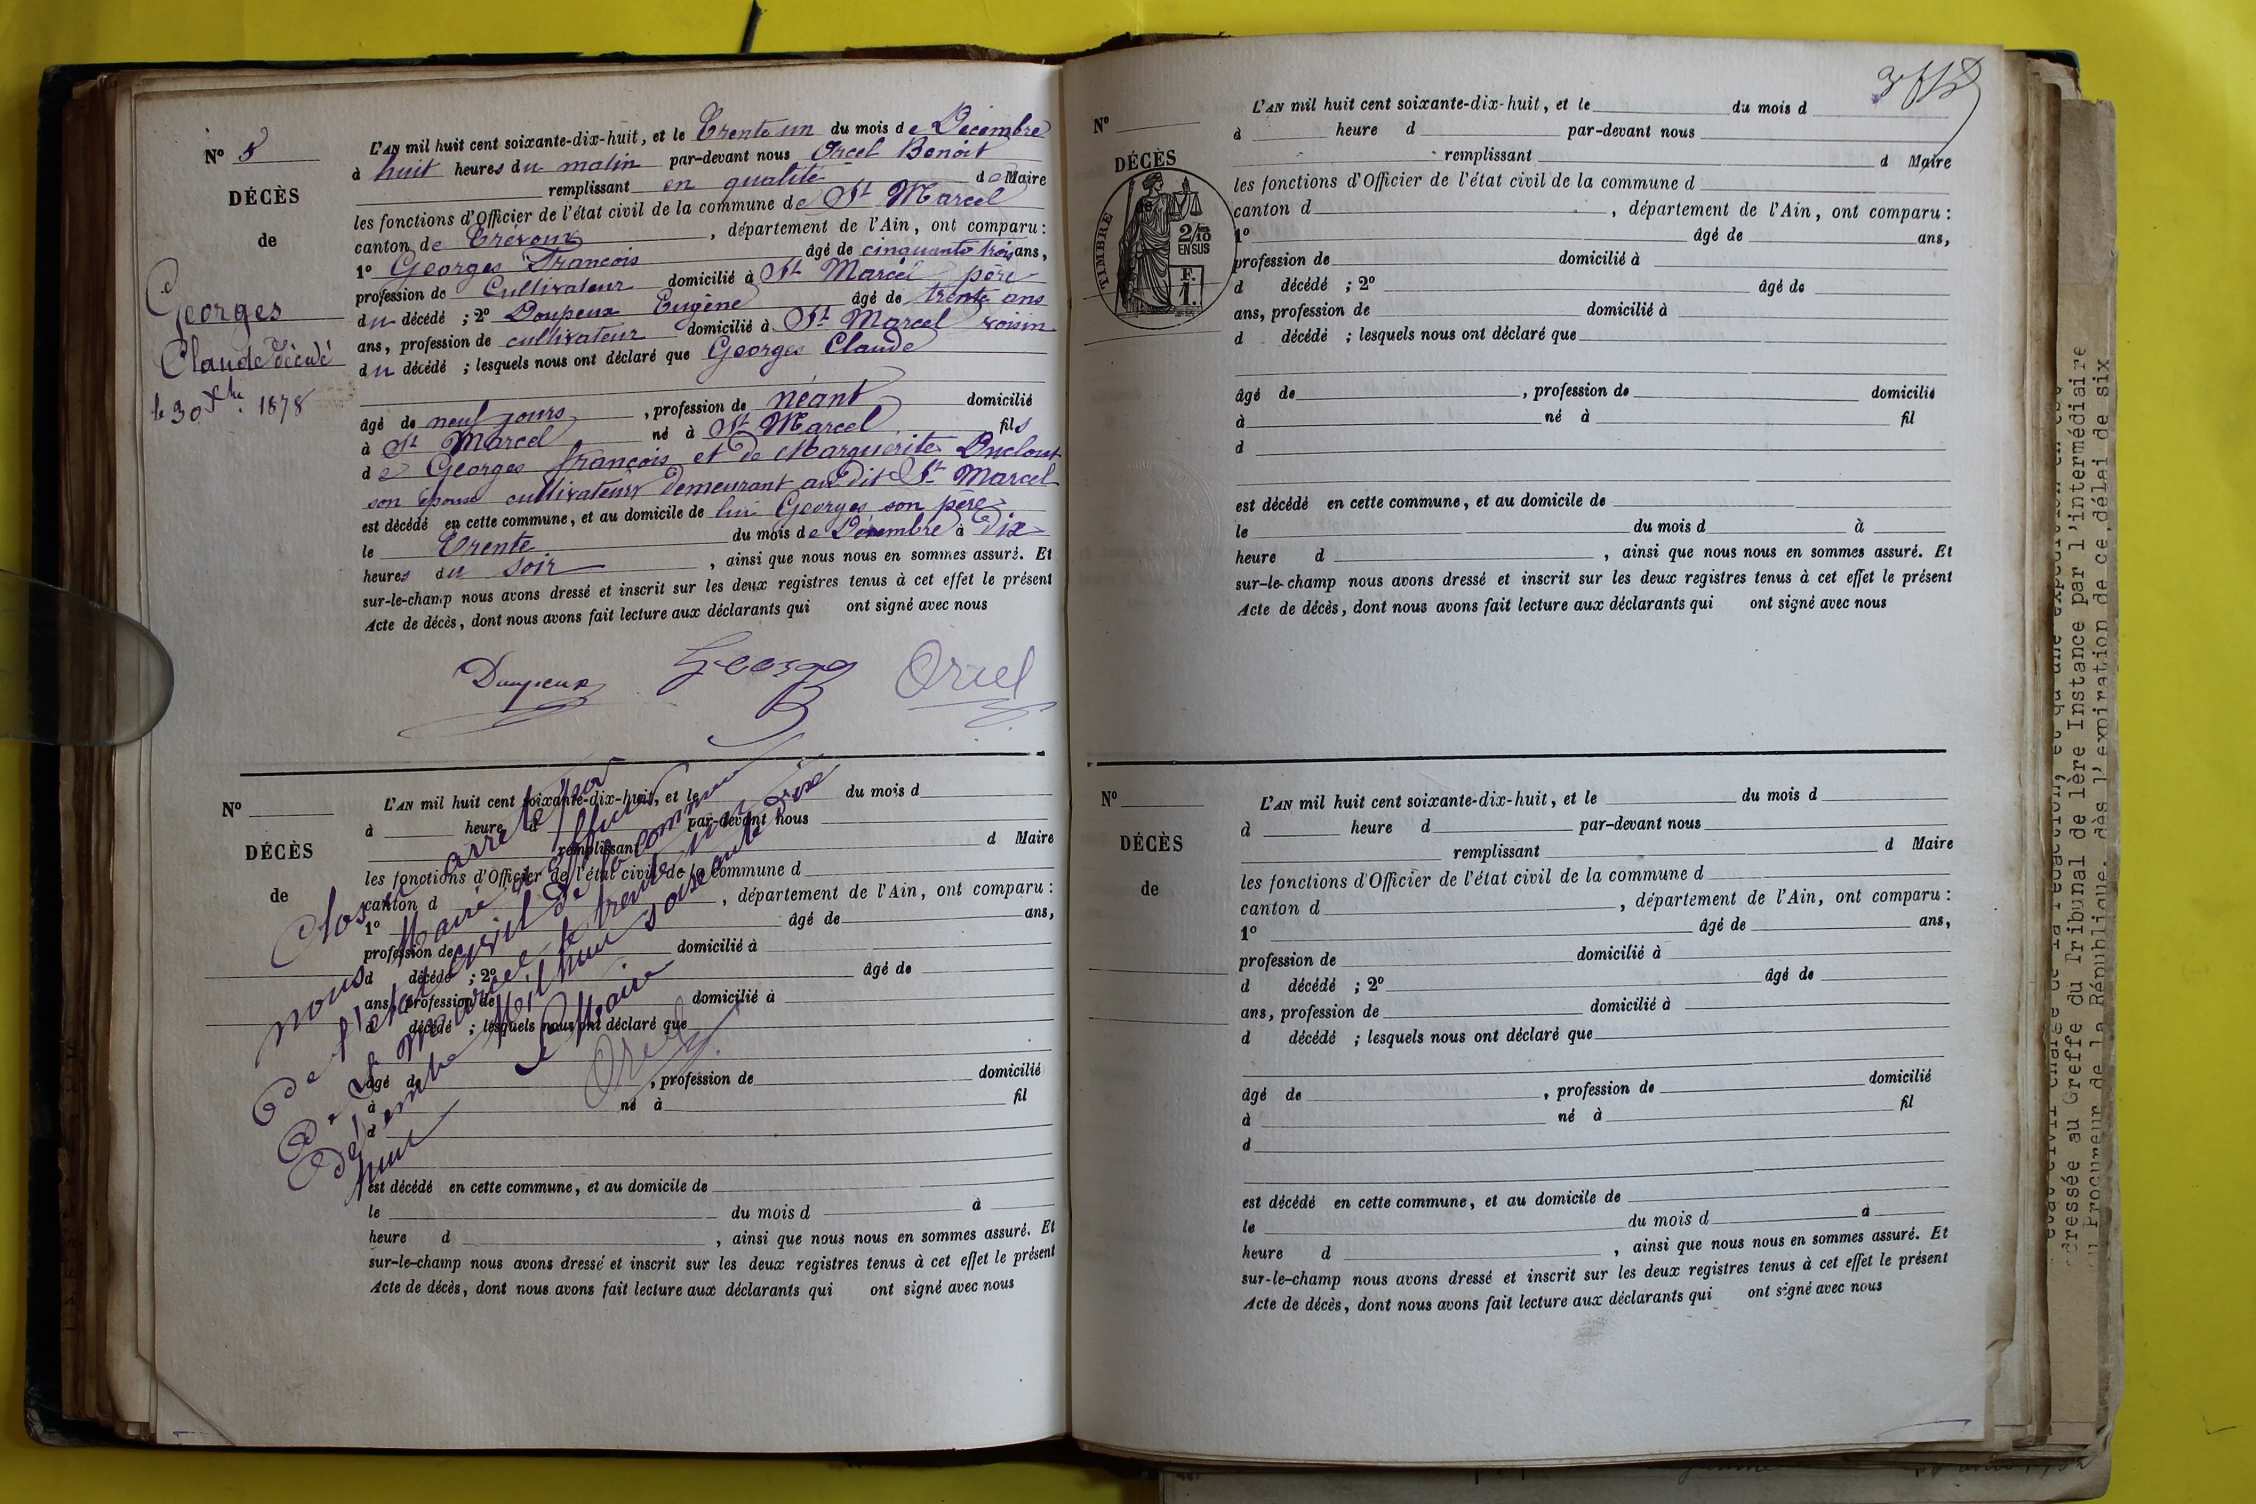 Nº 8
DÉCÈS
de
Georges
Claude décédé
le 30 Xbre 1878
L'AN mil huit cent soixante-dix-huit, et le Trente un du mois de Décembre
à huit heures du matin par-devant nous Orcel Benoit
remplissant en qualité de Maire
les fonctions d'Officier de l'état civil de la commune de St Marcel
canton de Trévoux, département de l'Ain, ont comparu :
1º Georges François âgé de cinquante trois ans,
profession de Cultivateur domicilié à St Marcel père
du décédé ; 2º Doupeux Eugène âgé de trente ans
ans, profession de cultivateur domicilié à St Marcel voisin
du décédé ; lesquels nous ont déclaré que Georges Claude
âgé de neuf jours, profession de néant domicilié
à St Marcel né à St Marcel fils
de Georges françois et de Marguerite Duclout
son épouse cultivateurs demeurant au dit St Marcel
est décédé en cette commune, et au domicile de lui Georges son père
le Trente du mois de Décembre à Dix
heures du soir, ainsi que nous nous en sommes assuré. Et
sur-le-champ nous avons dressé et inscrit sur les deux registres tenus à cet effet le présent
Acte de décès, dont nous avons fait lecture aux déclarants qui ont signé avec nous
Doupeux Georges Orcel
Nº
DÉCÈS
de
L'AN mil huit cent soixante-dix-huit, et le du mois d
à heure d par-devant nous
remplissant d Maire
les fonctions d'Officier de l'état civil de la commune d
canton d , département de l'Ain, ont comparu :
1º âgé de ans,
profession de domicilié à
d décédé ; 2º âgé de
ans, profession de domicilié à
d décédé ; lesquels nous ont déclaré que
âgé de , profession de domicilié
à né à fil
d
est décédé en cette commune, et au domicile de
le du mois d à
heure d , ainsi que nous nous en sommes assuré. Et
sur-le-champ nous avons dressé et inscrit sur les deux registres tenus à cet effet le présent
Acte de décès, dont nous avons fait lecture aux déclarants qui ont signé avec nous
Clos et arrêté par
nous Maire et officier
de l'état civil de la commune
de St Marcel le trente un
décembre Mil huit soixante dix
huit
Le Maire
Orcel
Nº
DÉCÈS
TIMBRE
2/10
EN SUS
F.
1.
L'AN mil huit cent soixante-dix-huit, et le du mois d
à heure d par-devant nous
remplissant d Maire
les fonctions d'Officier de l'état civil de la commune d
canton d , département de l'Ain, ont comparu :
1º âgé de ans,
profession de domicilié à
d décédé ; 2º âgé de
ans, profession de domicilié à
d décédé ; lesquels nous ont déclaré que
âgé de , profession de domicilié
à né à fil
d
est décédé en cette commune, et au domicile de
le du mois d à
heure d , ainsi que nous nous en sommes assuré. Et
sur-le-champ nous avons dressé et inscrit sur les deux registres tenus à cet effet le présent
Acte de décès, dont nous avons fait lecture aux déclarants qui ont signé avec nous
Nº
DÉCÈS
de
L'AN mil huit cent soixante-dix-huit, et le du mois d
à heure d par-devant nous
remplissant d Maire
les fonctions d'Officier de l'état civil de la commune d
canton d , département de l'Ain, ont comparu :
1º âgé de ans,
profession de domicilié à
d décédé ; 2º âgé de
ans, profession de domicilié à
d décédé ; lesquels nous ont déclaré que
âgé de , profession de domicilié
à né à fil
d
est décédé en cette commune, et au domicile de
le du mois d à
heure d , ainsi que nous nous en sommes assuré. Et
sur-le-champ nous avons dressé et inscrit sur les deux registres tenus à cet effet le présent
Acte de décès, dont nous avons fait lecture aux déclarants qui ont signé avec nous
dressée au Greffe du Tribunal de 1ère Instance par l'intermédiaire
Procureur de la République, dès l'expiration de ce délai de six